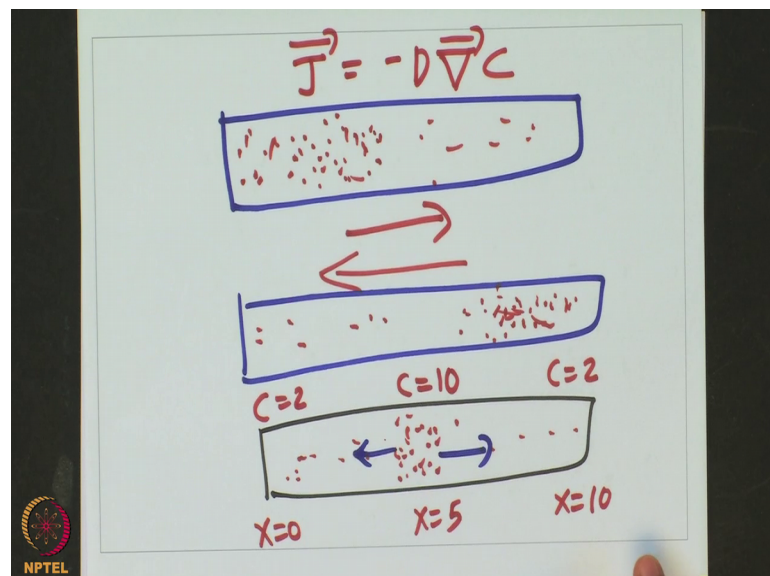 J = -D∇C
C=2 C=10 C=2
X=0 X=5 X=10
NPTEL